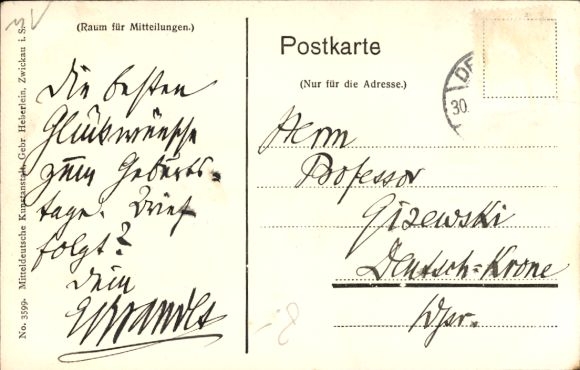 (Raum für Mitteilungen.)
Die besten
Glückwünsche
zum Geburts-
tage. Brief
folgt?
Dein
Postkarte
(Nur für die Adresse.)
Herrn
Professor
Gizewski
Deutsch-Krone
Wpr.
DE
30.
No. 3599. Mitteldeutsche Kunstanstalt, Gebr. Heberlein, Zwickau i. S.